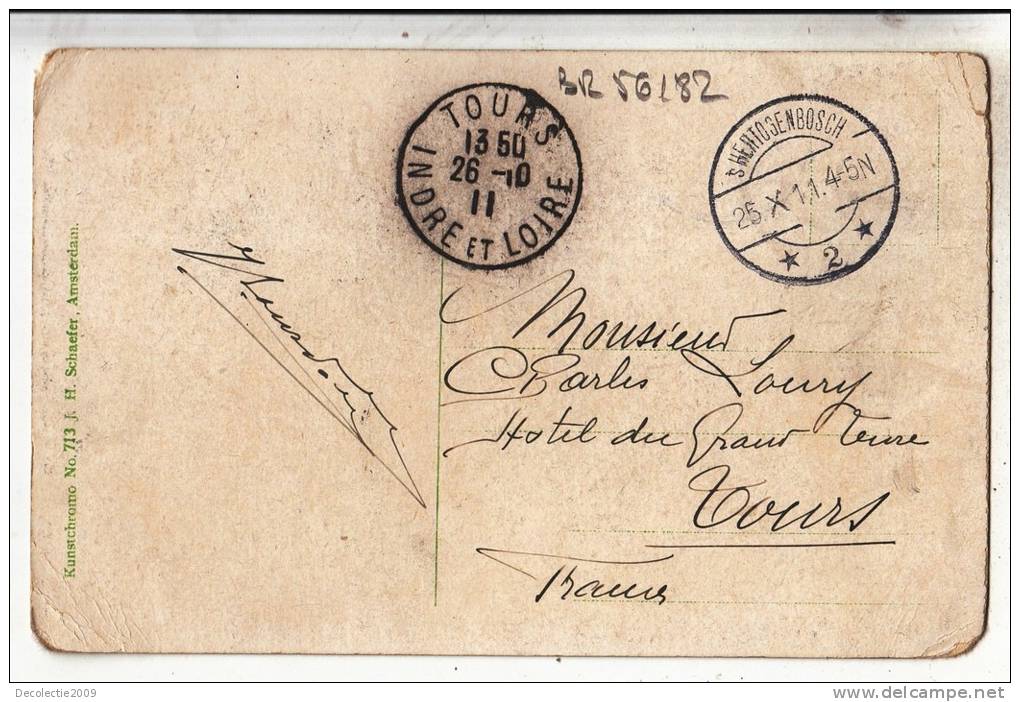 BR 56182
TOURS
13 50
26 -10
11
INDRE ET LOIRE
'S HERTOGENBOSCH
25 X 11. 4-5N
★ 2 ★
Monsieur
Charles Loury
Hotel du Grand
Tours
France
Kunstchromo No. 713 J. H. Schaefer, Amsterdam.
Decolectie2009
www.delcampe.net